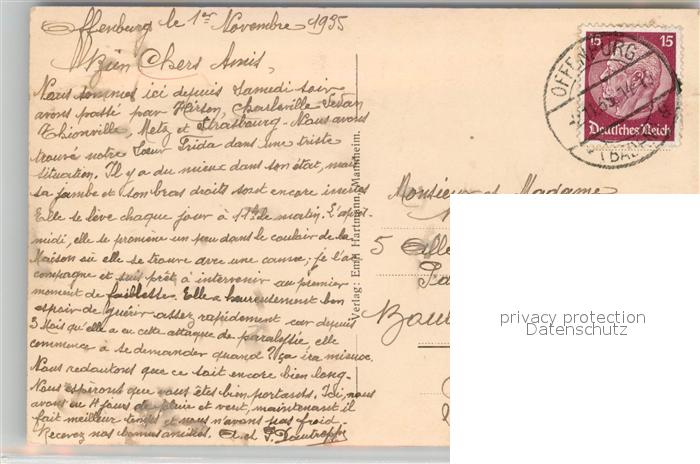 Offenburg le 1er Novembre 1935
Bien Chers Amis,
Nous sommes ici depuis Samedi soir
avons passé par Hirson, Charleville-Sedan
Thionville, Metz et Strasbourg. Nous avons
trouvé notre Sœur Frida dans une triste
situation. Il y a du mieux dans son état, mais
sa jambe et son bras droits sont encore inertes
Elle se lève chaque jour à 11h le matin. L'après-
midi, elle se promène un peu dans le couloir de la
Maison où elle se trouve avec une canne; je l'ac-
compagne et suis prêt à intervenir au premier
moment de faiblesse. Elle a heureusement bon
espoir de guérir assez rapidement car depuis
3 Mois qu'elle a eu cette attaque de paralysie, elle
commence à se demander quand? ça ira mieux.
Nous redoutons que ce soit encore bien long.
Nous espérons que vous êtes bien portants. Ici, nous
avons eu 4 jours de pluie et vent, maintenant il
fait meilleur temps et nous n'avons pas froid.
Recevez nos bonnes amitiés. et
Verlag: Emil Hartmann, Mannheim.
15 15
Deutsches Reich
OFFENBURG
(BADEN)
Monsieur et Madame
5
privacy protection
Datenschutz